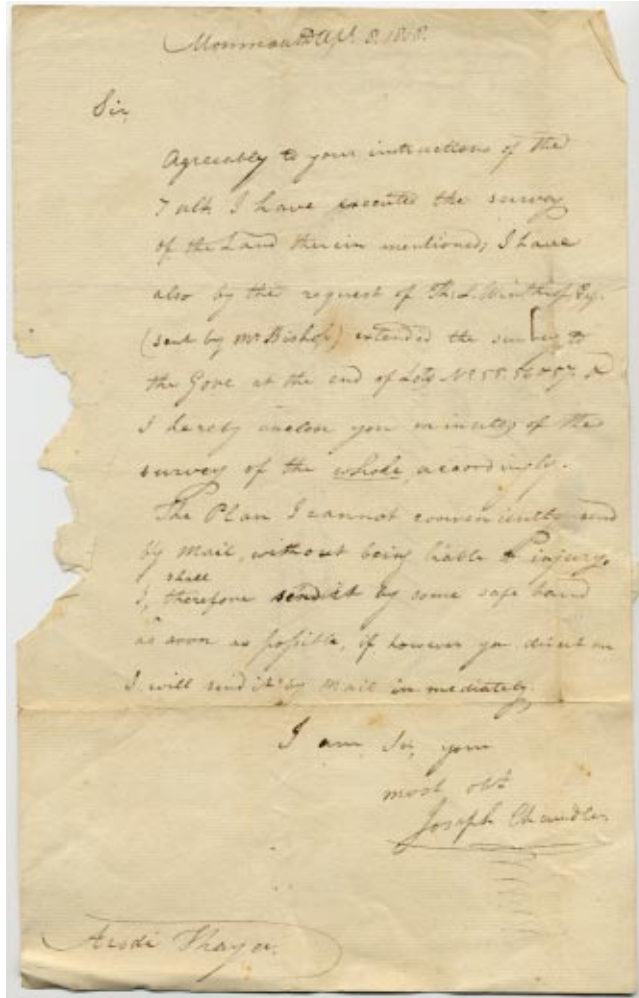 Monmouth Apl. 8. 1808.
Sir,
Agreeably to your instructions of the
7 ulto I have executed the survey
of the Land therein mentioned; I have
also by the request of Th. L. Winthrop Esq.
(sent by Mr Bishop) extended the survey to
the Gore at the end of Lots No 55. 56 & 57. &
I hereby enclose you minutes of the
survey of the whole, accordingly.
The Plan I cannot conveniently send
by Mail, without being liable to injury.
I, shall therefore send it by some safe hand
as soon as possible, if however you direct me
I will send it by Mail immediately.
I am Sir, your
most obt
Joseph Chandler
Arodi Thayer.